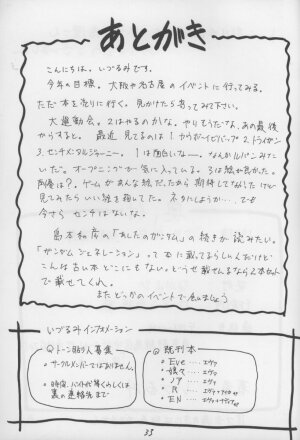 あとがき
こんにちは。いづるみです。
今年の目標。大阪や名古屋のイベントに行ってみる。
ただ本を売りに行く。見かけたら寄ってみて下さい。
大運動会。2はやるのかな。やりそうだな、あの最後
からすると。最近見てるのは1.カウボーイビバップ 2.トライガン
3.センチメンタルジャーニー。1は面白いなー。なんかルパンみて
いた。オープニングが気に入っている。3は絵が良かった。
ゲームがあんな絵だったから期待してなかったけど
見てみたらいい絵を描いてた。ネタにしようか…でも
今さらセンチはないな。
島本和彦の「あしたのガンダム」の続きが読みたい。
「ガンダムジェネレーション」って本に載ってるらしいんだけど
こんな古い本どこにもない。どうせ載せんなら2本セット
で載せてくれ。
またどっかのイベントで会いましょう
いづるみインフォメーション
◎トーン貼り人募集
・サークルメンバーではありません。
・時給、バイト代等くわしくは
裏の連絡先まで
◎既刊本
・Eve…エヴァ
・嬉々…エヴァ
・ノア…エヴァ
・R…エヴァ+
・EN…エヴァ+
33